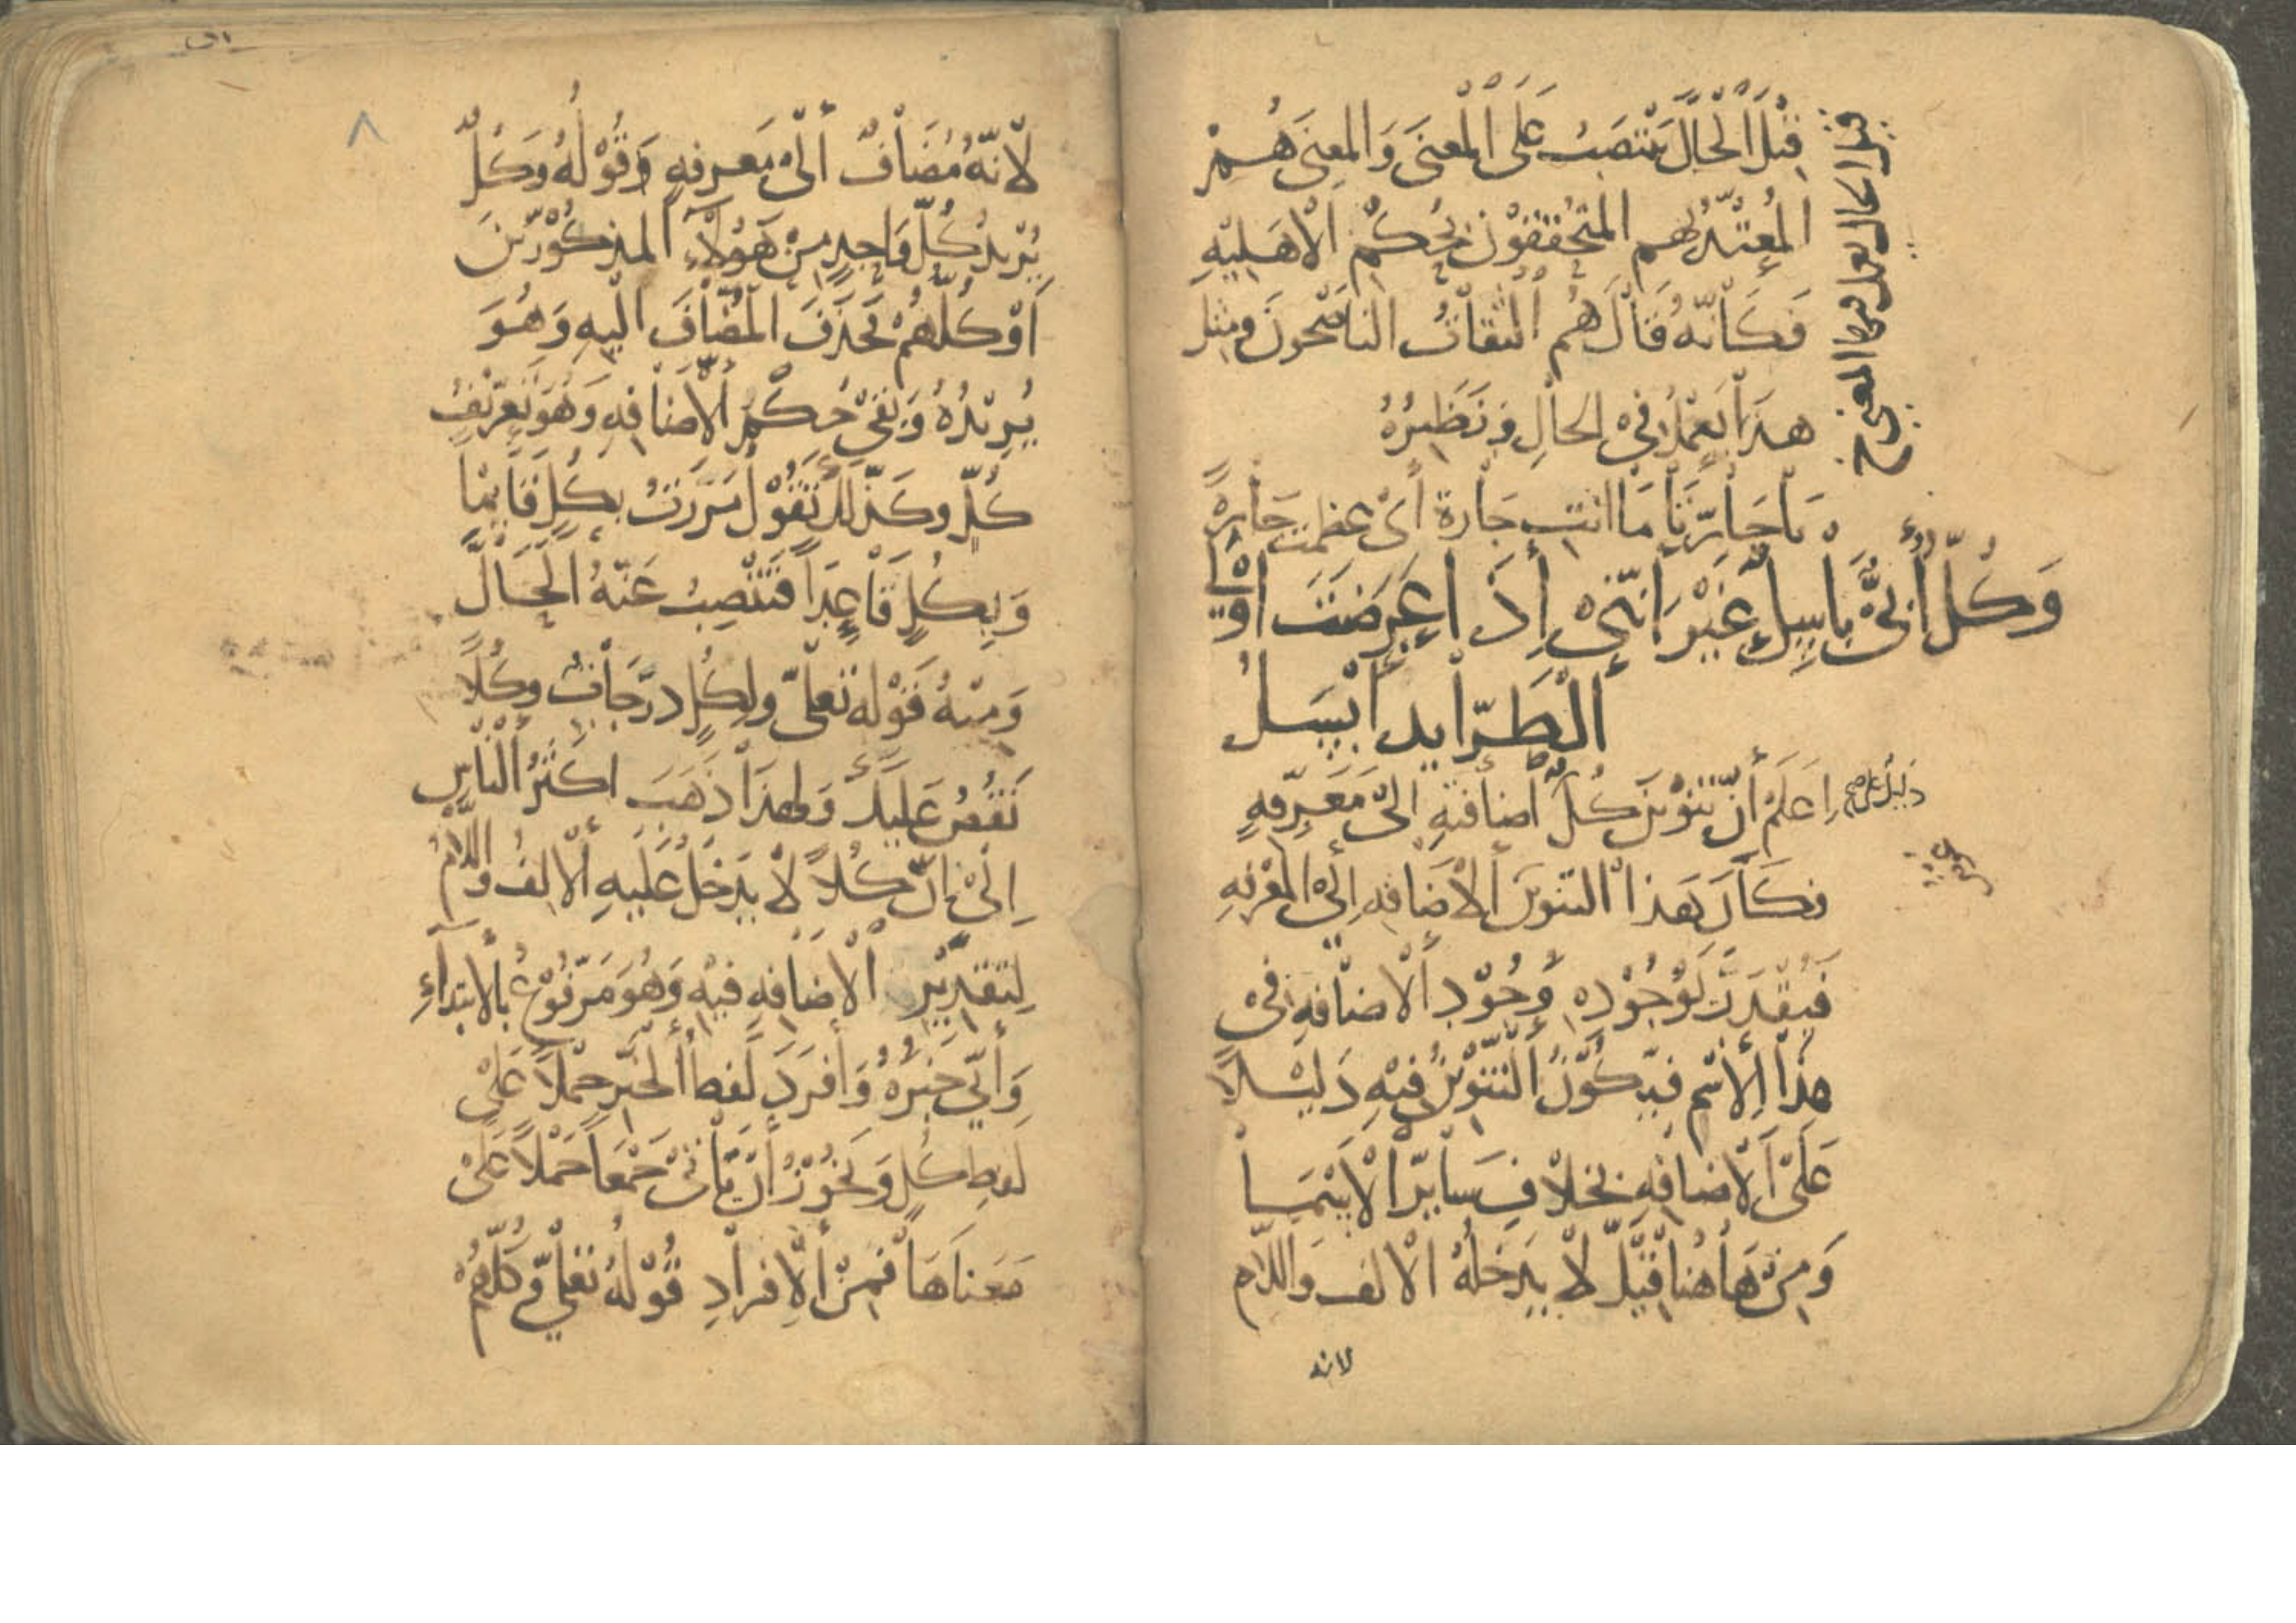 قبل الحال ينتصب على المعنى والمعنى هم
المعتد بهم المتحققون بحكم الاهليه
فكانه قال هم الثقات الناصحون ومثل
هذا يعمل في الحال ونظيره
يا جارتا ما انت جارة أي عظمت جارة
وكل أبي باسل غير انني إذا عرضت اولى
الطرايد ابسل
اعلم أن تنوين كل اضافته الى معرفه
فكان هذا التنوين الاضافه إلى المعرفه
فيقدر لوجوده وجود الاضافه في
هذا الاسم فيكون التنوين فيه دليلا
على الاضافه بخلاف ساير الاسما
ومن هاهنا قيل لا يدخله الالف واللام
لانه
قبل الحال يعمل فيها المعنى
لانه مضاف الى معرفه وقوله وكل
يريد كل واحد من هؤلاء المذكورين
او كلهم فحذف المضاف اليه وهو
يريده وبقي حكم الاضافه وهو تعريف
كل وكذلك تقول مررت بكل قايما
وبكل قاعدا فتنصب عنه الحال
ومنه قوله تعلى ولكل درجات وكلا
نقص عليك ولهذا ذهب اكثر الناس
إلى ان كلا لا يدخل عليه الالف واللام
لتقدير الاضافه فيه وهو مرفوع بالابتداء
وأبي خبره وأفرد لفظ الخبر حملا على
لفظ كل ويجوز أن يأتى جمعا حملا على
معناها فمن الافراد قوله تعلى وكلهم
٨